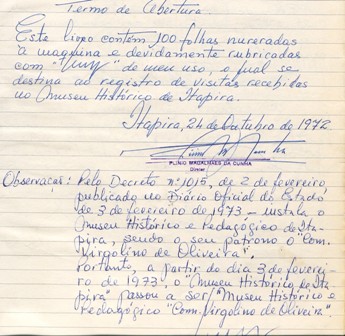 Termo de Abertura
Este livro contém 100 folhas numeradas
à maquina e devidamente rubricadas
com " " de meu uso, o qual se
destina ao registro de visitas recebidas
no Museu Histórico de Itapira.
Itapira, 24 de Outubro de 1972
PLINIO MAGALHAES DA CUNHA
Diretor
Observação: Pelo Decreto nº 1015, de 2 de fevereiro,
publicado no Diário Oficial do Estado
de 3 de fevereiro de 1973 - instala o
Museu Histórico e Pedagógico de Ita-
pira, sendo o seu patrono o "Com.
Virgolino de Oliveira".
Portanto, a partir do dia 3 de feverei-
ro de 1973, o "Museu Histórico de Ita-
pira" passou a ser "Museu Histórico e
Pedagógico "Com. Virgolino de Oliveira".